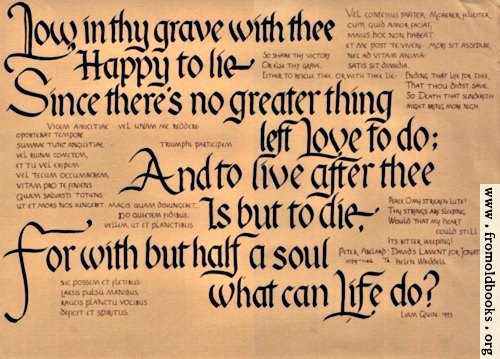 Low, in thy grave with thee
Happy to lie
Since there's no greater thing
left Love to do;
And to live after thee
Is but to die,
For with but half a soul
what can Life do?
VEL CONFOSSUS PARITER, MORERER FELICITER
CUM, QUID AMOR FACIAT,
MAIUS HOC NON HABEAT
ET ME POST TE VIVERE MORI SIT ASSIDUE,
NEC AD VITAM ANIMA
SATIS SIT DIMIDIA.
SO SHARE THY VICTORY
OR ELSE THY GRAVE,
EITHER TO RESCUE THEE, OR WITH THEE LIE:
ENDING THAT LIFE FOR THEE
THAT THOU DIDST SAVE,
SO DEATH THAT SUNDERETH
MIGHT BRING MORE NIGH.
VICEM AMICITIAE VEL UNAM ME REDDERE
OPORTEBAT TEMPORE
SUMMAE TUNC ANGUSTIAE,
TRIUMPHI PARTICIPEM
VEL RUINAE COMITEM,
ET TU VEL ERIPEM
VEL TECUM OCCUMBEREM,
VITAM PRO TE FINIENS
QUAM SALVASTI TOTIENS,
UT ET MORS NOS IUNGERET MAGIS QUAM DISIUNGERET.
DO QUIETEM FIDIBUS:
VELLEM, UT ET PLANCTIBUS
SIC POSSEM ET FLETIBUS
LAESIS PULSU MANIBUS,
RAUCIS PLANCTU VOCIBUS
DEFICIT ET SPIRITUS.
PEACE, O MY STRICKEN LUTE!
THY STRINGS ARE SLEEPING
WOULD THAT MY HEART
COULD STILL
ITS BITTER WEEPING!
PETER ABELARD: DAVID'S LAMENT FOR JONAT
TR HELEN WADDELL
LIAM QUIN 1993
www.fromoldbooks.org